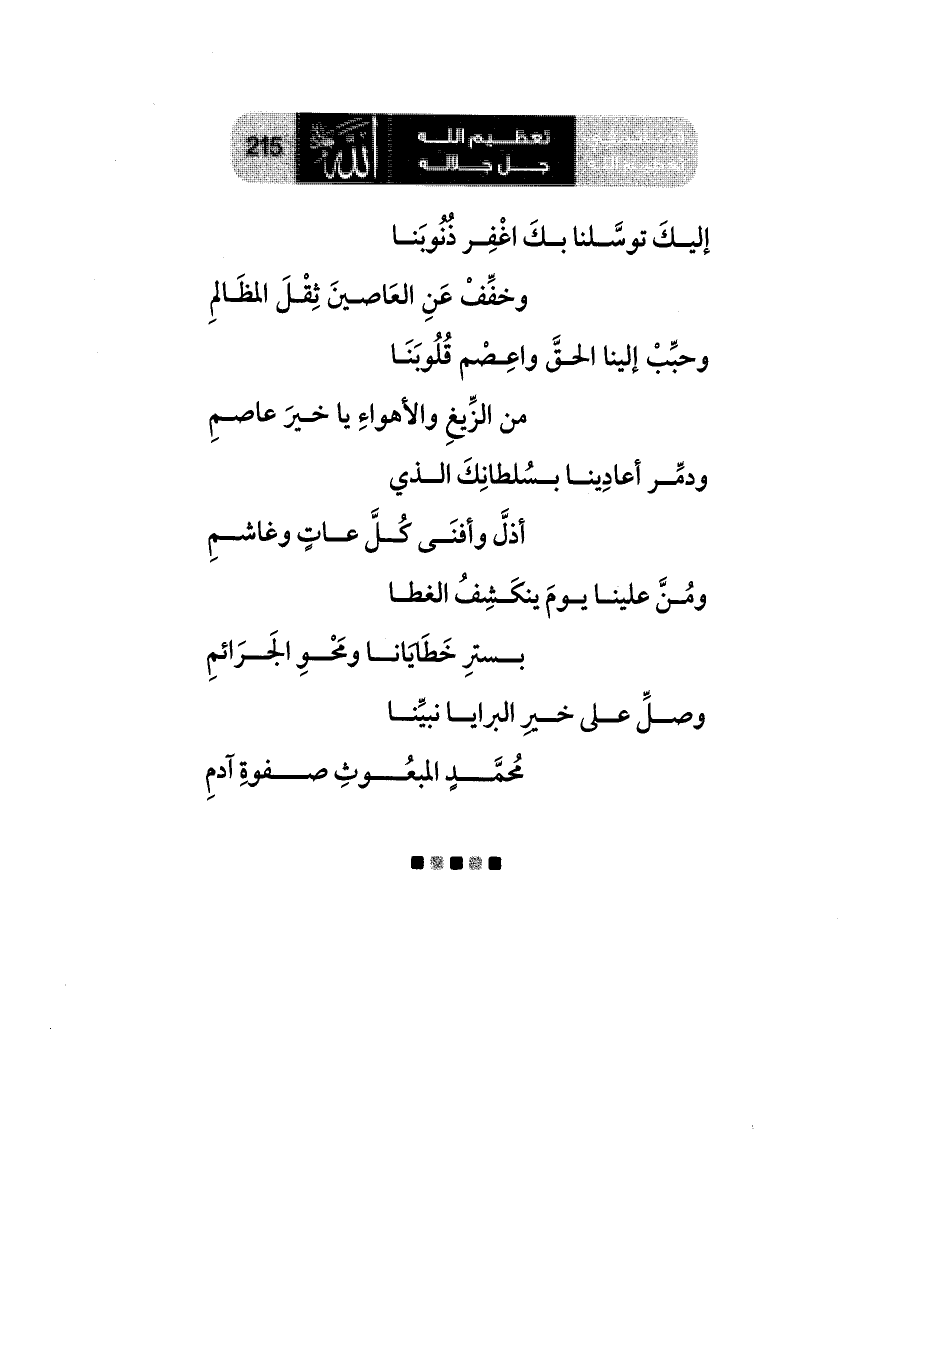 تعظيم الله
جل جلاله
الله
215
إليكَ توسَّلنا بكَ اغْفِر ذُنُوبَنا
وخفِّفْ عَنِ العَاصينَ ثِقْلَ المظَالمِ
وحبِّبْ إلينا الحقَّ واعِصْم قُلُوبَنَا
من الزِّيغِ والأهواءِ يا خيرَ عاصمِ
ودمِّر أعادِينا بسُلطانِكَ الذي
أذلَّ وأفنَى كُلَّ عاتٍ وغاشمِ
ومُنَّ علينا يومَ ينكَشِفُ الغطا
بسترِ خَطَايَانا ومَحْوِ الجَرَائمِ
وصلِّ على خيرِ البرايا نبيِّنا
مُحمَّدٍ المبعُوثِ صفوةِ آدمِ